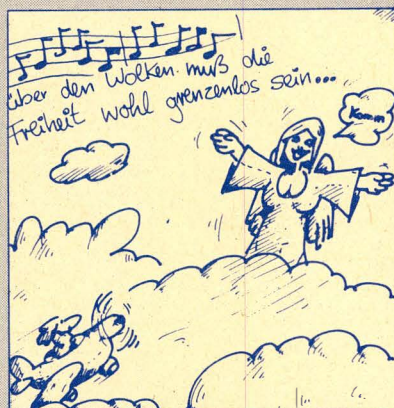 über den Wolken muß die
Freiheit wohl grenzenlos sein...
Komm